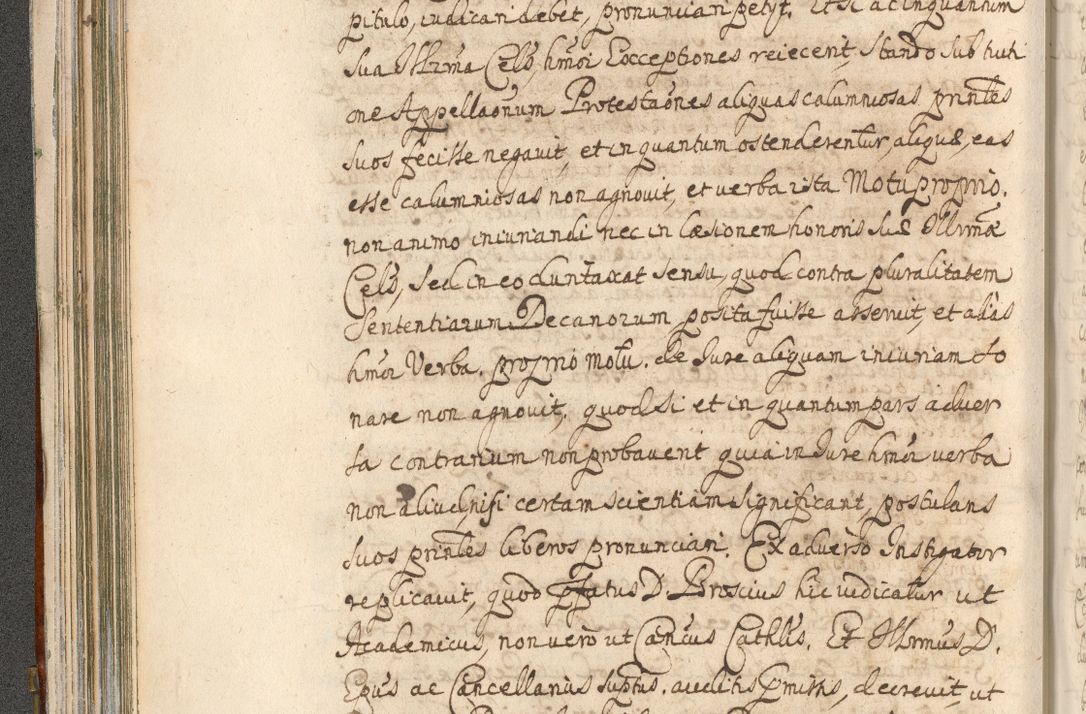 pitulo, iudicari debet, pronunciari petyt. Et si ac inquantum
Sua Illrma Cels, hmoi Exceptiones reiecerit, Stando sub huti
one Appellaonum Protestaones aliquas calumniosas prinles
suos fecisse negavit, et in quantum ostenderentur, aliquæ, eas
esse calumniosas non agnovit, et verba ista Motu proprio.
non animo iniuriandi nec in læsionem honoris suæ Illrmæ
Cels, sed in eo duntaxat sensu, quod contra pluralitatem
Sententiarum Decanorum posita fuisse asseruit, et alias
hmoi Verba. proprio motu. de Jure aliquam iniuriam so
nare non agnovit, quod si et in quantum pars adver
sa contrarium non probaverit quia in Jure hmoi verba
non aliud, nisi certam scientiam significant, postulans
suos prinles liberos pronunciari. Ex adverso Instigator
replicavit, quod pffatus D. Broscius hic iudicatur ut
Academicus, non vero ut Cancus Cathlis. Et Illrmus D.
Epus ac Cancellarius suptus. auditis pmissis, decrevit, ut